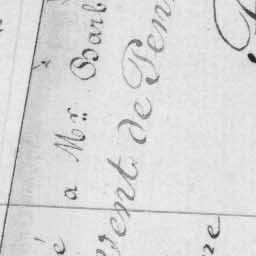 é a Mr. Barb
vent de Pen
re